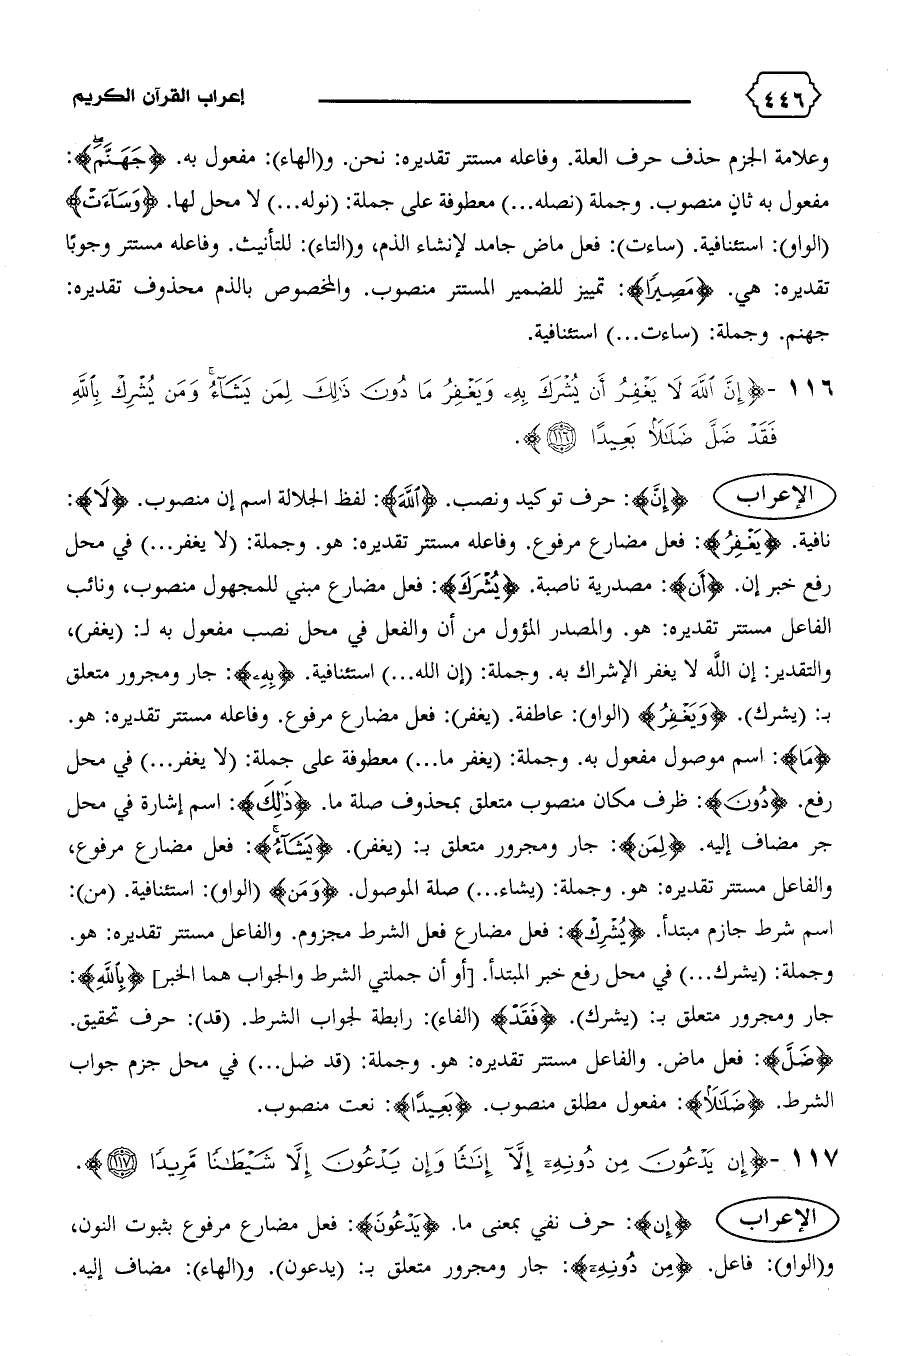 ٤٤٦ إعراب القرآن الكريم
وعلامة الجزم حذف حرف العلة. وفاعله مستتر تقديره: نحن. و(الهاء): مفعول به. ﴿جَهَنَّمَۖ﴾:
مفعول به ثانٍ منصوب. وجملة (نصله...) معطوفة على جملة: (نوله...) لا محل لها. ﴿وَسَآءَتْ﴾
(الواو): استئنافية. (ساءت): فعل ماض جامد لإنشاء الذم، و(التاء): للتأنيث. وفاعله مستتر وجوبًا
تقديره: هي. ﴿مَصِيرًا﴾: تمييز للضمير المستتر منصوب. والمخصوص بالذم محذوف تقديره:
جهنم. وجملة: (ساءت...) استئنافية.
١١٦ -﴿إِنَّ ٱللَّهَ لَا يَغْفِرُ أَن يُشْرَكَ بِهِۦ وَيَغْفِرُ مَا دُونَ ذَٰلِكَ لِمَن يَشَآءُۚ وَمَن يُشْرِكْ بِٱللَّهِ
فَقَدْ ضَلَّ ضَلَـٰلًۢا بَعِيدًا ١١٦﴾.
الإعراب ﴿إِنَّ﴾: حرف توكيد ونصب. ﴿ٱللَّهَ﴾: لفظ الجلالة اسم إن منصوب. ﴿لَا﴾:
نافية. ﴿يَغْفِرُ﴾: فعل مضارع مرفوع. وفاعله مستتر تقديره: هو. وجملة: (لا يغفر...) في محل
رفع خبر إن. ﴿أَن﴾: مصدرية ناصبة. ﴿يُشْرَكَ﴾: فعل مضارع مبني للمجهول منصوب، ونائب
الفاعل مستتر تقديره: هو. والمصدر المؤول من أن والفعل في محل نصب مفعول به لـ: (يغفر)،
والتقدير: إن اللَّه لا يغفر الإشراك به. وجملة: (إن الله...) استئنافية. ﴿بِهِۦ﴾: جار ومجرور متعلق
بـ: (يشرك). ﴿وَيَغْفِرُ﴾ (الواو): عاطفة. (يغفر): فعل مضارع مرفوع. وفاعله مستتر تقديره: هو.
﴿مَا﴾: اسم موصول مفعول به. وجملة: (يغفر ما...) معطوفة على جملة: (لا يغفر...) في محل
رفع. ﴿دُونَ﴾: ظرف مكان منصوب متعلق بمحذوف صلة ما. ﴿ذَٰلِكَ﴾: اسم إشارة في محل
جر مضاف إليه. ﴿لِمَن﴾: جار ومجرور متعلق بـ: (يغفر). ﴿يَشَآءُۚ﴾: فعل مضارع مرفوع،
والفاعل مستتر تقديره: هو. وجملة: (يشاء...) صلة الموصول. ﴿وَمَن﴾ (الواو): استئنافية. (من):
اسم شرط جازم مبتدأ. ﴿يُشْرِكْ﴾: فعل مضارع فعل الشرط مجزوم. والفاعل مستتر تقديره: هو.
وجملة: (يشرك...) في محل رفع خبر المبتدأ. [أو أن جملتي الشرط والجواب هما الخبر] ﴿بِٱللَّهِ﴾:
جار ومجرور متعلق بـ: (يشرك). ﴿فَقَدْ﴾ (الفاء): رابطة لجواب الشرط. (قد): حرف تحقيق.
﴿ضَلَّ﴾: فعل ماض. والفاعل مستتر تقديره: هو. وجملة: (قد ضل...) في محل جزم جواب
الشرط. ﴿ضَلَـٰلًۢا﴾: مفعول مطلق منصوب. ﴿بَعِيدًا﴾: نعت منصوب.
١١٧ -﴿إِن يَدْعُونَ مِن دُونِهِۦٓ إِلَّآ إِنَـٰثًا وَإِن يَدْعُونَ إِلَّا شَيْطَـٰنًا مَّرِيدًا ١١٧﴾.
الإعراب ﴿إِن﴾: حرف نفي بمعنى ما. ﴿يَدْعُونَ﴾: فعل مضارع مرفوع بثبوت النون،
و(الواو): فاعل. ﴿مِن دُونِهِۦٓ﴾: جار ومجرور متعلق بـ: (يدعون). و(الهاء): مضاف إليه.